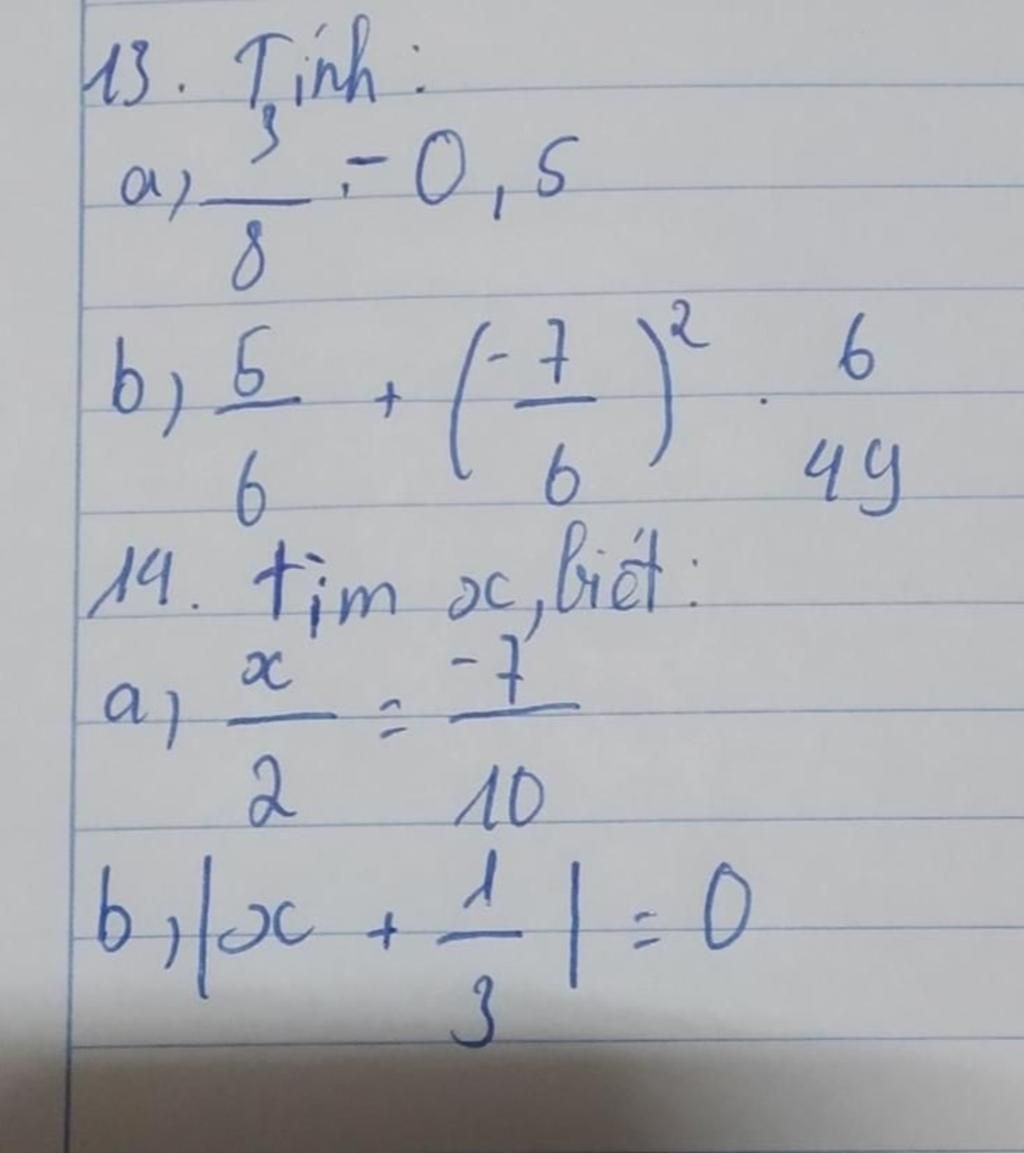 13. Tính:
a, 3/8 - 0,5
b, 5/6 + (-7/6)² . 6/49
14. tìm x, biết:
a, x/2 = -7/10
b, |x + 1/3| = 0